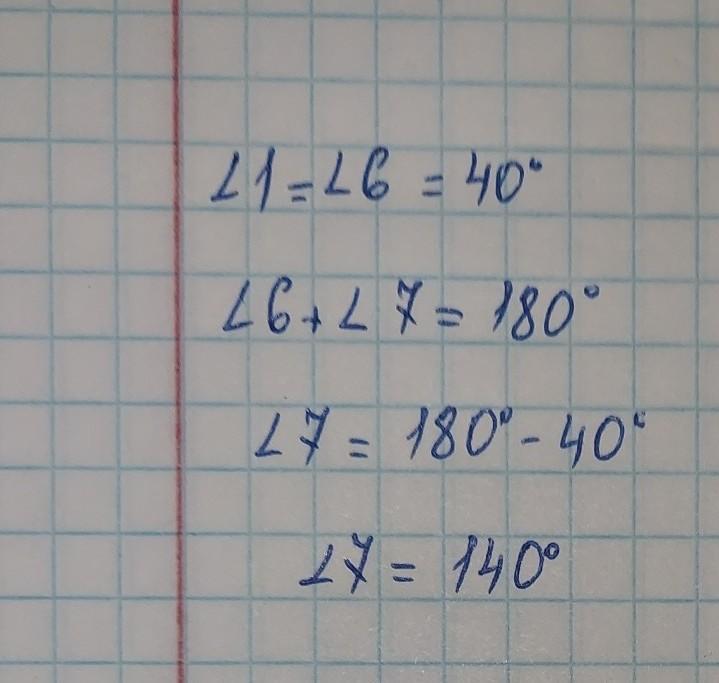 ∠1 = ∠6 = 40°
∠6 + ∠7 = 180°
∠7 = 180° - 40°
∠7 = 140°